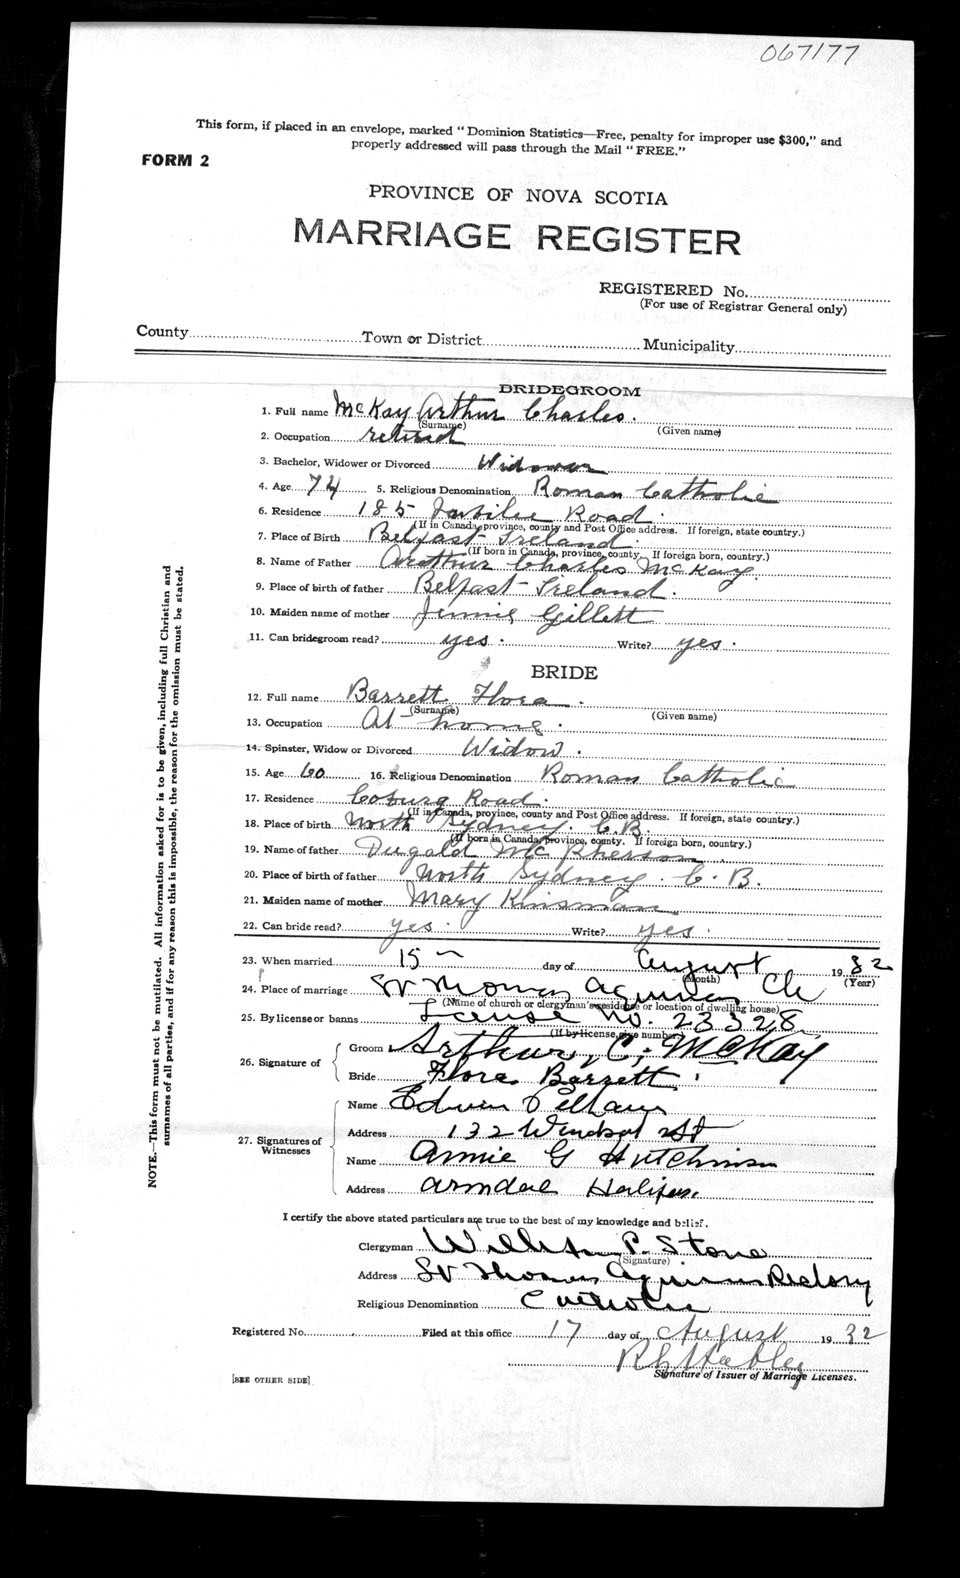 067177
This form, if placed in an envelope, marked "Dominion Statistics—Free, penalty for improper use $300," and
properly addressed will pass through the Mail "FREE."
FORM 2
PROVINCE OF NOVA SCOTIA
MARRIAGE REGISTER
REGISTERED No.
(For use of Registrar General only)
County Town or District Municipality
BRIDEGROOM
1. Full name McKay Arthur Charles.
(Surname) (Given name)
2. Occupation retired
3. Bachelor, Widower or Divorced Widower
4. Age 74 5. Religious Denomination Roman Catholic
6. Residence 185 Jubilee Road.
(If in Canada, province, county and Post Office address. If foreign, state country.)
7. Place of Birth Belfast Ireland.
(If born in Canada, province, county. If foreign born, country.)
8. Name of Father Arthur Charles McKay.
9. Place of birth of father Belfast Ireland.
10. Maiden name of mother Jennie Gillett
11. Can bridegroom read? yes. Write? yes.
BRIDE
12. Full name Barrett Flora.
(Surname) (Given name)
13. Occupation At home.
14. Spinster, Widow or Divorced Widow.
15. Age 60 16. Religious Denomination Roman Catholic
17. Residence Coburg Road.
(If in Canada, province, county and Post Office address. If foreign, state country.)
18. Place of birth North Sydney. C.B.
(If born in Canada, province, county. If foreign born, country.)
19. Name of father Dugald McPherson
20. Place of birth of father North Sydney. C.B.
21. Maiden name of mother Mary Kinsman
22. Can bride read? yes. Write? yes.
23. When married 15 day of August 1932
(Month) (Year)
24. Place of marriage St Thomas Aquinas Ch
(Name of church or clergyman's residence or location of dwelling house)
25. By license or banns License No. 23328
(If by license, give number)
26. Signature of Groom Arthur, C, McKay
Bride Flora Barrett
27. Signatures of Witnesses Name Edwin
Address 132 Windsor St
Name Annie G Hutchinson
Address Armdale Halifax.
I certify the above stated particulars are true to the best of my knowledge and belief.
Clergyman William P. Stone
(Signature)
Address St Thomas Aquinas Rectory
Religious Denomination Catholic
Registered No. Filed at this office 17 day of August 1932
Signature of Issuer of Marriage Licenses.
[SEE OTHER SIDE]
NOTE.—This form must not be mutilated. All information asked for is to be given, including full Christian and
surnames of all parties, and if for any reason this is impossible, the reason for the omission must be stated.